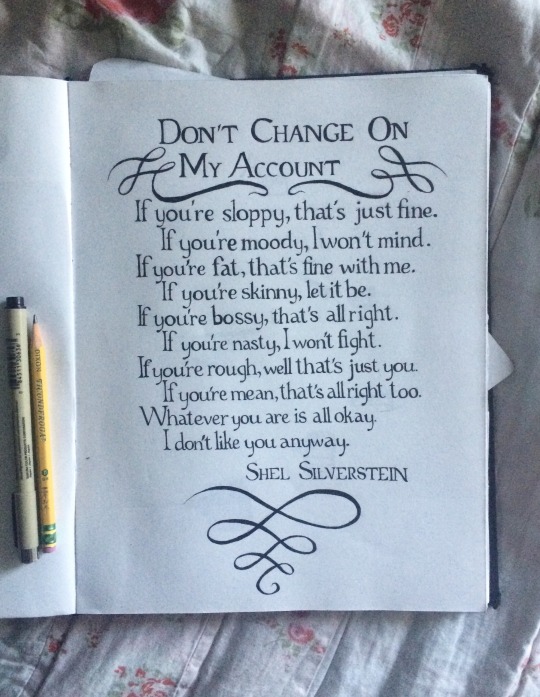 DON'T CHANGE ON
MY ACCOUNT
If you're sloppy, that's just fine.
If you're moody, I won't mind.
If you're fat, that's fine with me.
If you're skinny, let it be.
If you're bossy, that's all right.
If you're nasty, I won't fight.
If you're rough, well that's just you.
If you're mean, that's all right too.
Whatever you are is all okay.
I don't like you anyway.
SHEL SILVERSTEIN
DIXON TICONDEROGA